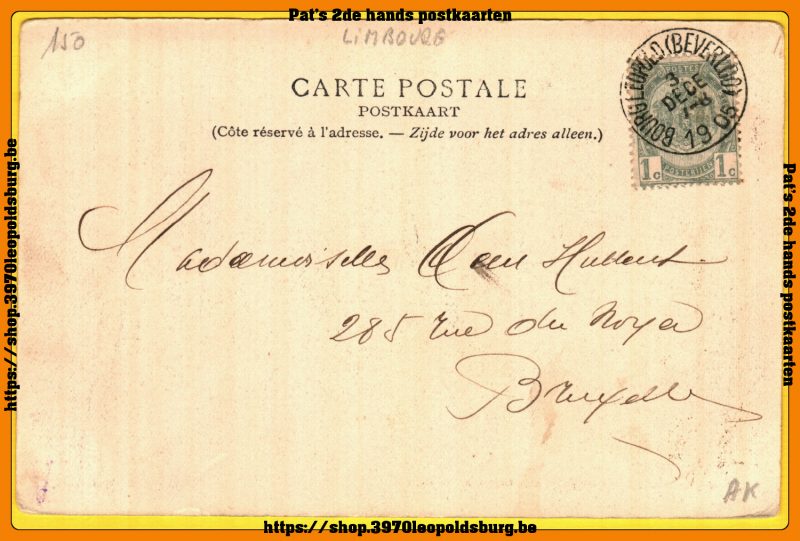 Pat's 2de hands postkaarten
150
LIMBOURG
CARTE POSTALE
POSTKAART
(Côte réservé à l'adresse. — Zijde voor het adres alleen.)
BOURG-LEOPOLD (BEVERLOO)
3
DECE
17-8
1905
POSTES
1c POSTERIJEN 1c
Mademoiselle Hullent
285 rue du Noyer
Bruxelles
AK
https://shop.3970leopoldsburg.be
https://shop.3970leopoldsburg.be
Pat's 2de hands postkaarten